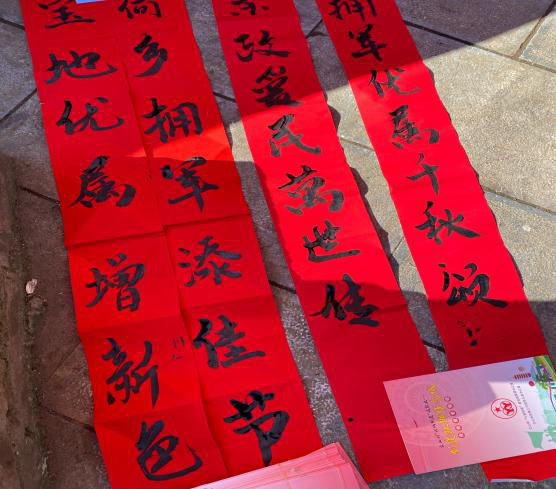 拥军优属千秋颂
政爱民萬世佳
乡拥军添佳节
地优属增新色